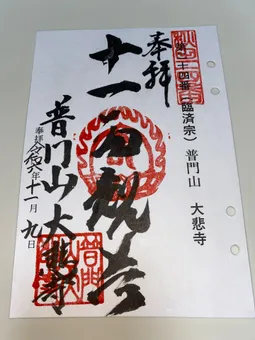 奉拝
第二十四番（臨済宗）普門山　大悲寺
十一面観音
普門山大悲寺
奉拝令和六年十一月九日